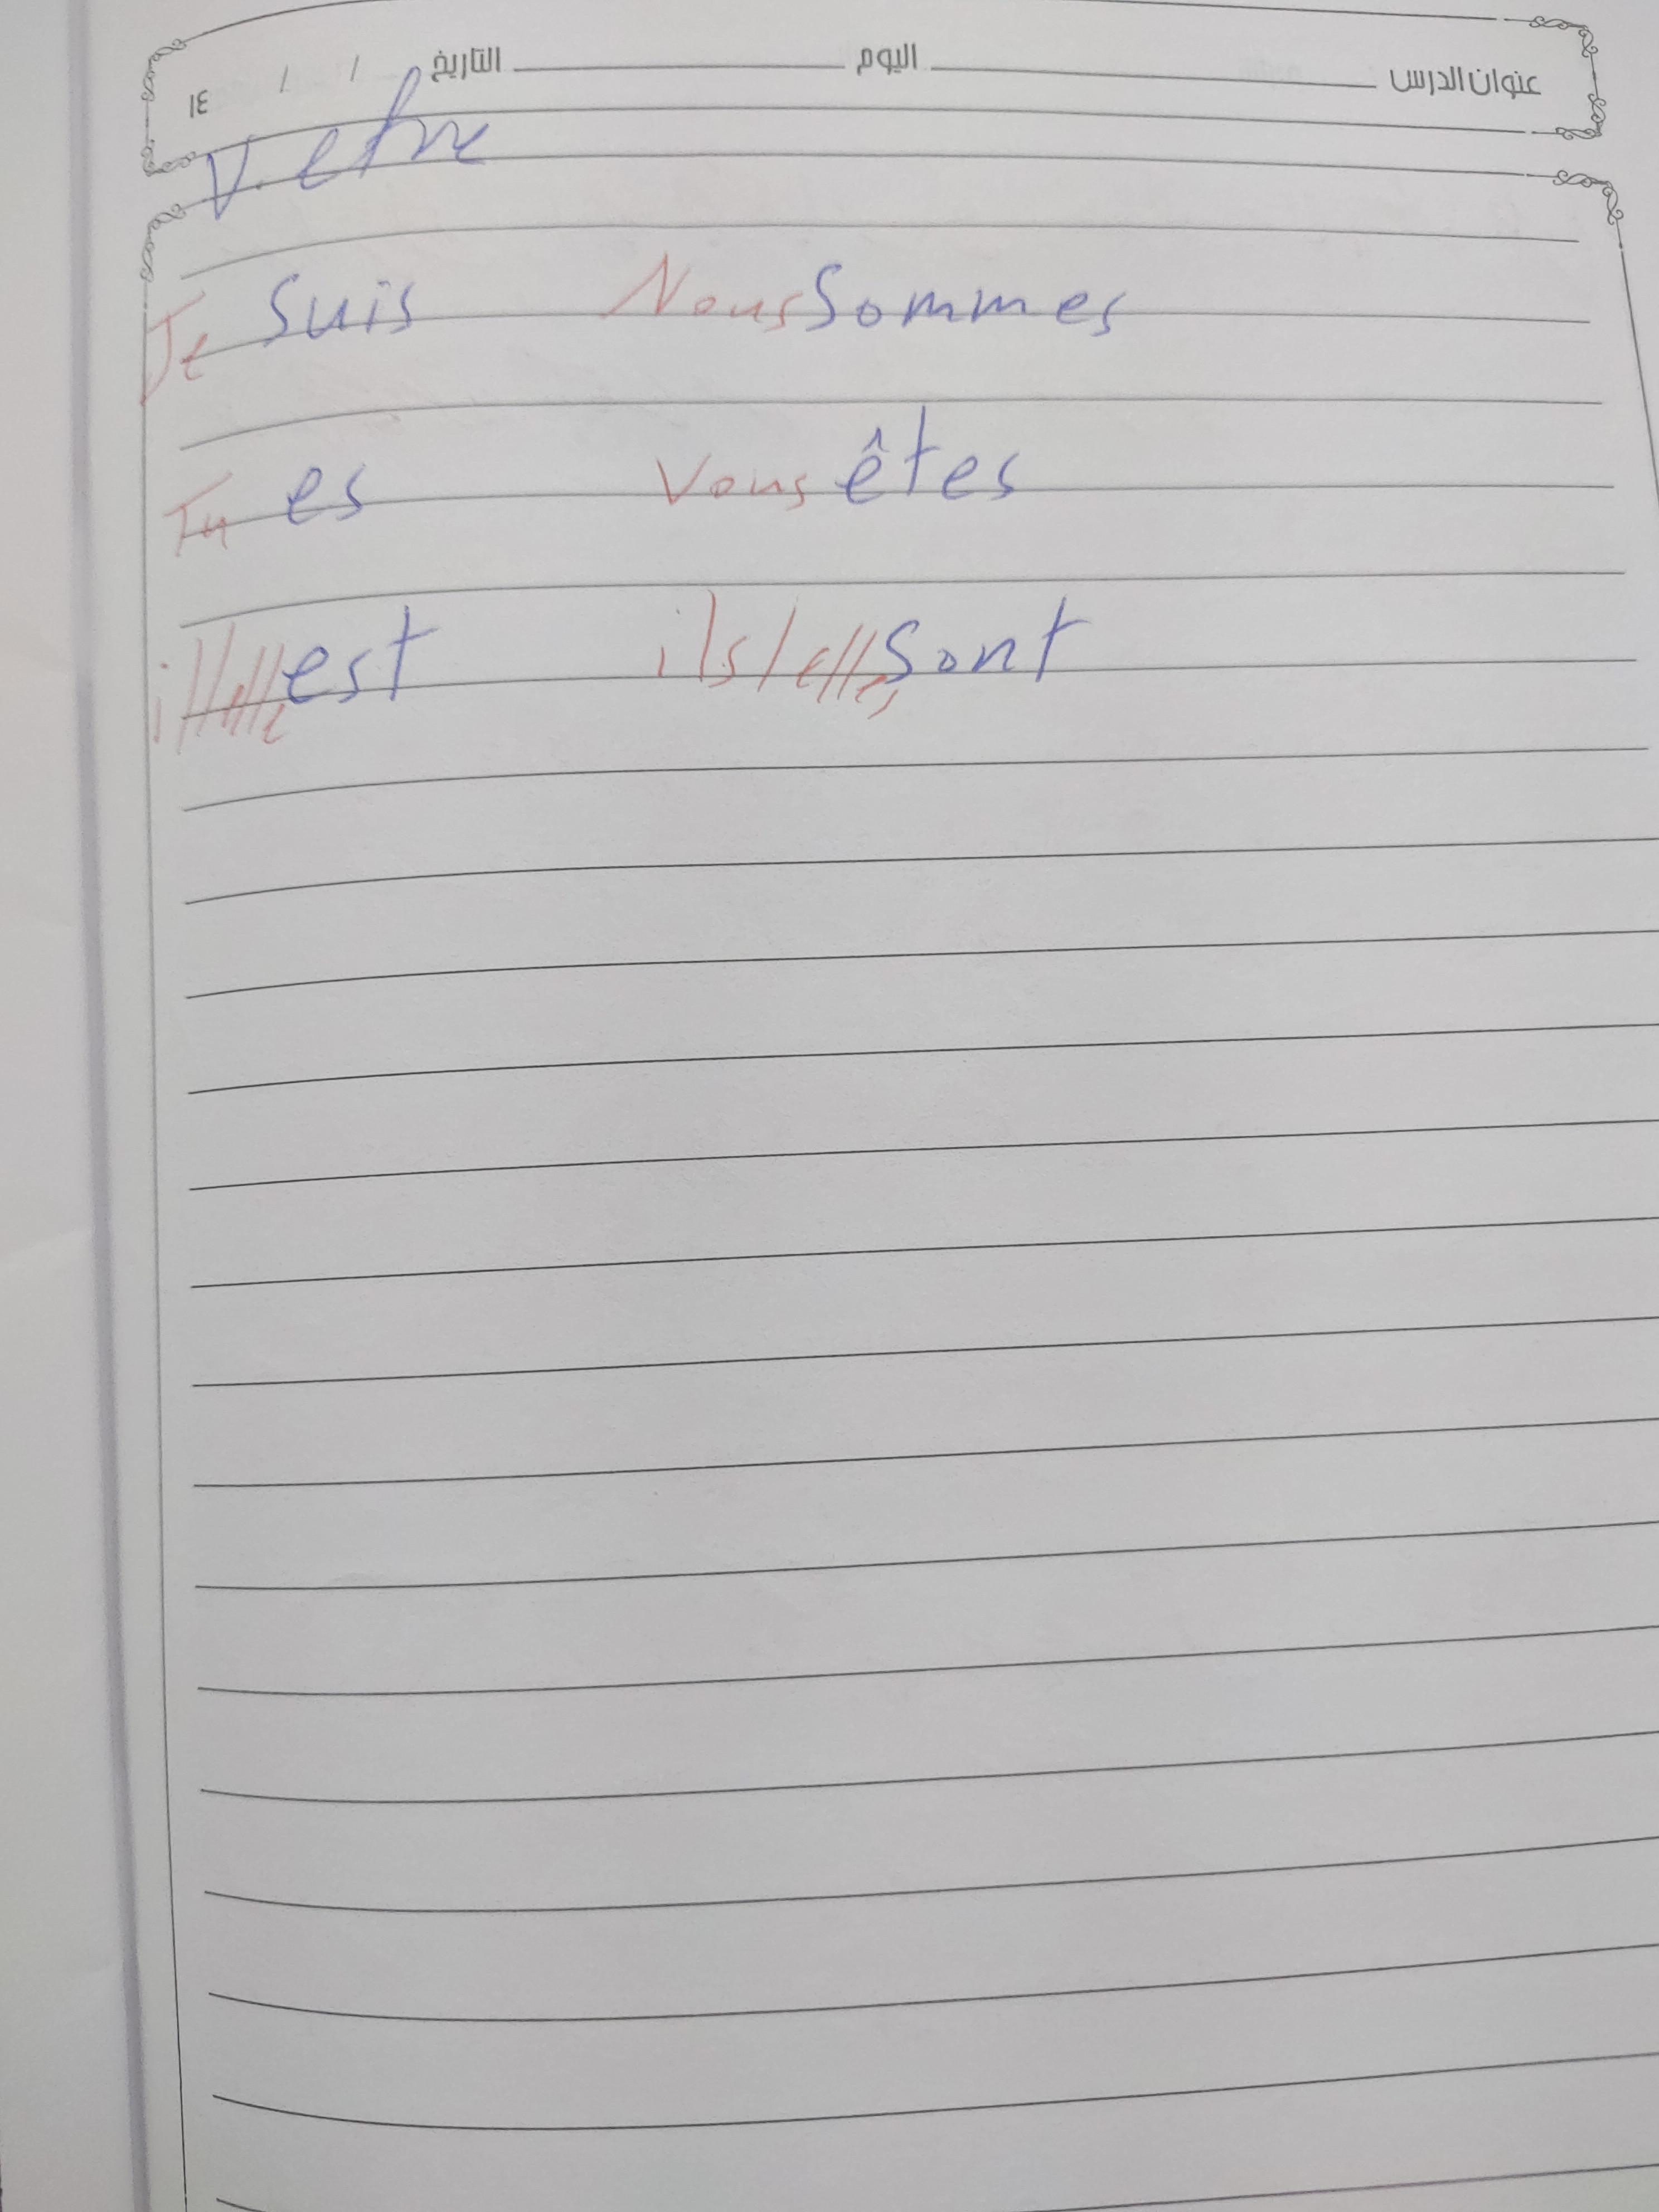 عنوان الدرس اليوم التاريخ / /
١٤
V. etre
Je suis Nous Sommes
Tu es Vous êtes
il/elle est ils/elles sont